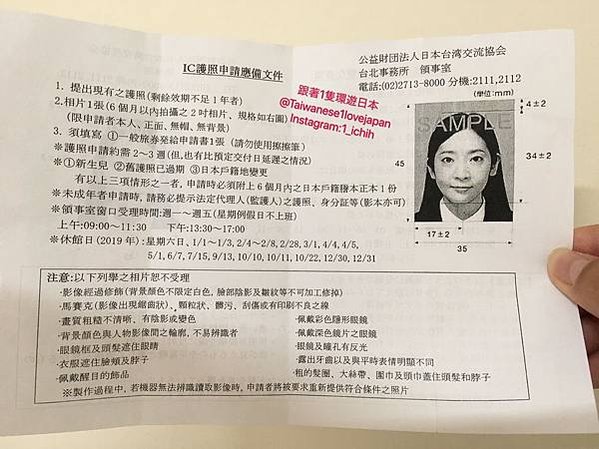 公益財団法人日本台湾交流協会
台北事務所 領事室
電話:(02)2713-8000 分機:2111,2112
IC護照申請應備文件
1. 提出現有之護照(剩餘效期不足1年者)
2.相片1張(6個月以內拍攝之2吋相片、規格如右圖)
(限申請者本人、正面、無帽、無背景)
3. 須填寫 ①一般旅券発給申請書1張 (請勿使用擦擦筆)
※護照申請約需2~3週(但,也有比預定交付日延遲之情況)
※①新生兒 ②舊護照已過期 ③日本戶籍地變更
有以上三項情形之一者, 申請時必須附上6個月內之日本戶籍謄本正本1份
※未成年者申請時, 請務必提示法定代理人(監護人)之護照、身分証等(影本亦可)
※領事室窗口受理時間:週一~週五(星期例假日不上班)
上午:09:00~11:30 下午:13:30~17:00
※休館日(2019年):星期六日, 1/1~1/3, 2/4~2/8, 2/28, 3/1, 4/4, 4/5,
5/1, 6/7, 7/15, 9/13, 10/10, 10/11, 10/22, 12/30, 12/31
跟著1隻環遊日本
@Taiwanese1lovejapan
Instagram:1_ichih
(単位:mm)
SAMPLE
4±2
45
34±2
17±2
35
注意:以下列舉之相片恕不受理
·影像經過修飾(背景顏色不限定白色, 臉部陰影及皺紋等不可加工修掉)
·馬賽克(影像出現鋸齒狀)、顆粒狀、髒污、刮傷或有印刷不良之線
·畫質粗糙不清晰、有陰影或變色
·佩戴彩色隱形眼鏡
·背景顏色與人物影像間之輪廓, 不易辨識者
·佩戴深色鏡片之眼鏡
·眼鏡框及頭髮遮住眼睛
·眼鏡及瞳孔有反光
·衣服遮住臉頰及脖子
·露出牙齒以及與平時表情明顯不同
·佩戴醒目的飾品
·粗的髮圈、大絲帶、圍巾及頭巾蓋住頭髮和脖子
※製作過程中, 若機器無法辨識讀取影像時, 申請者將被要求重新提供符合條件之照片